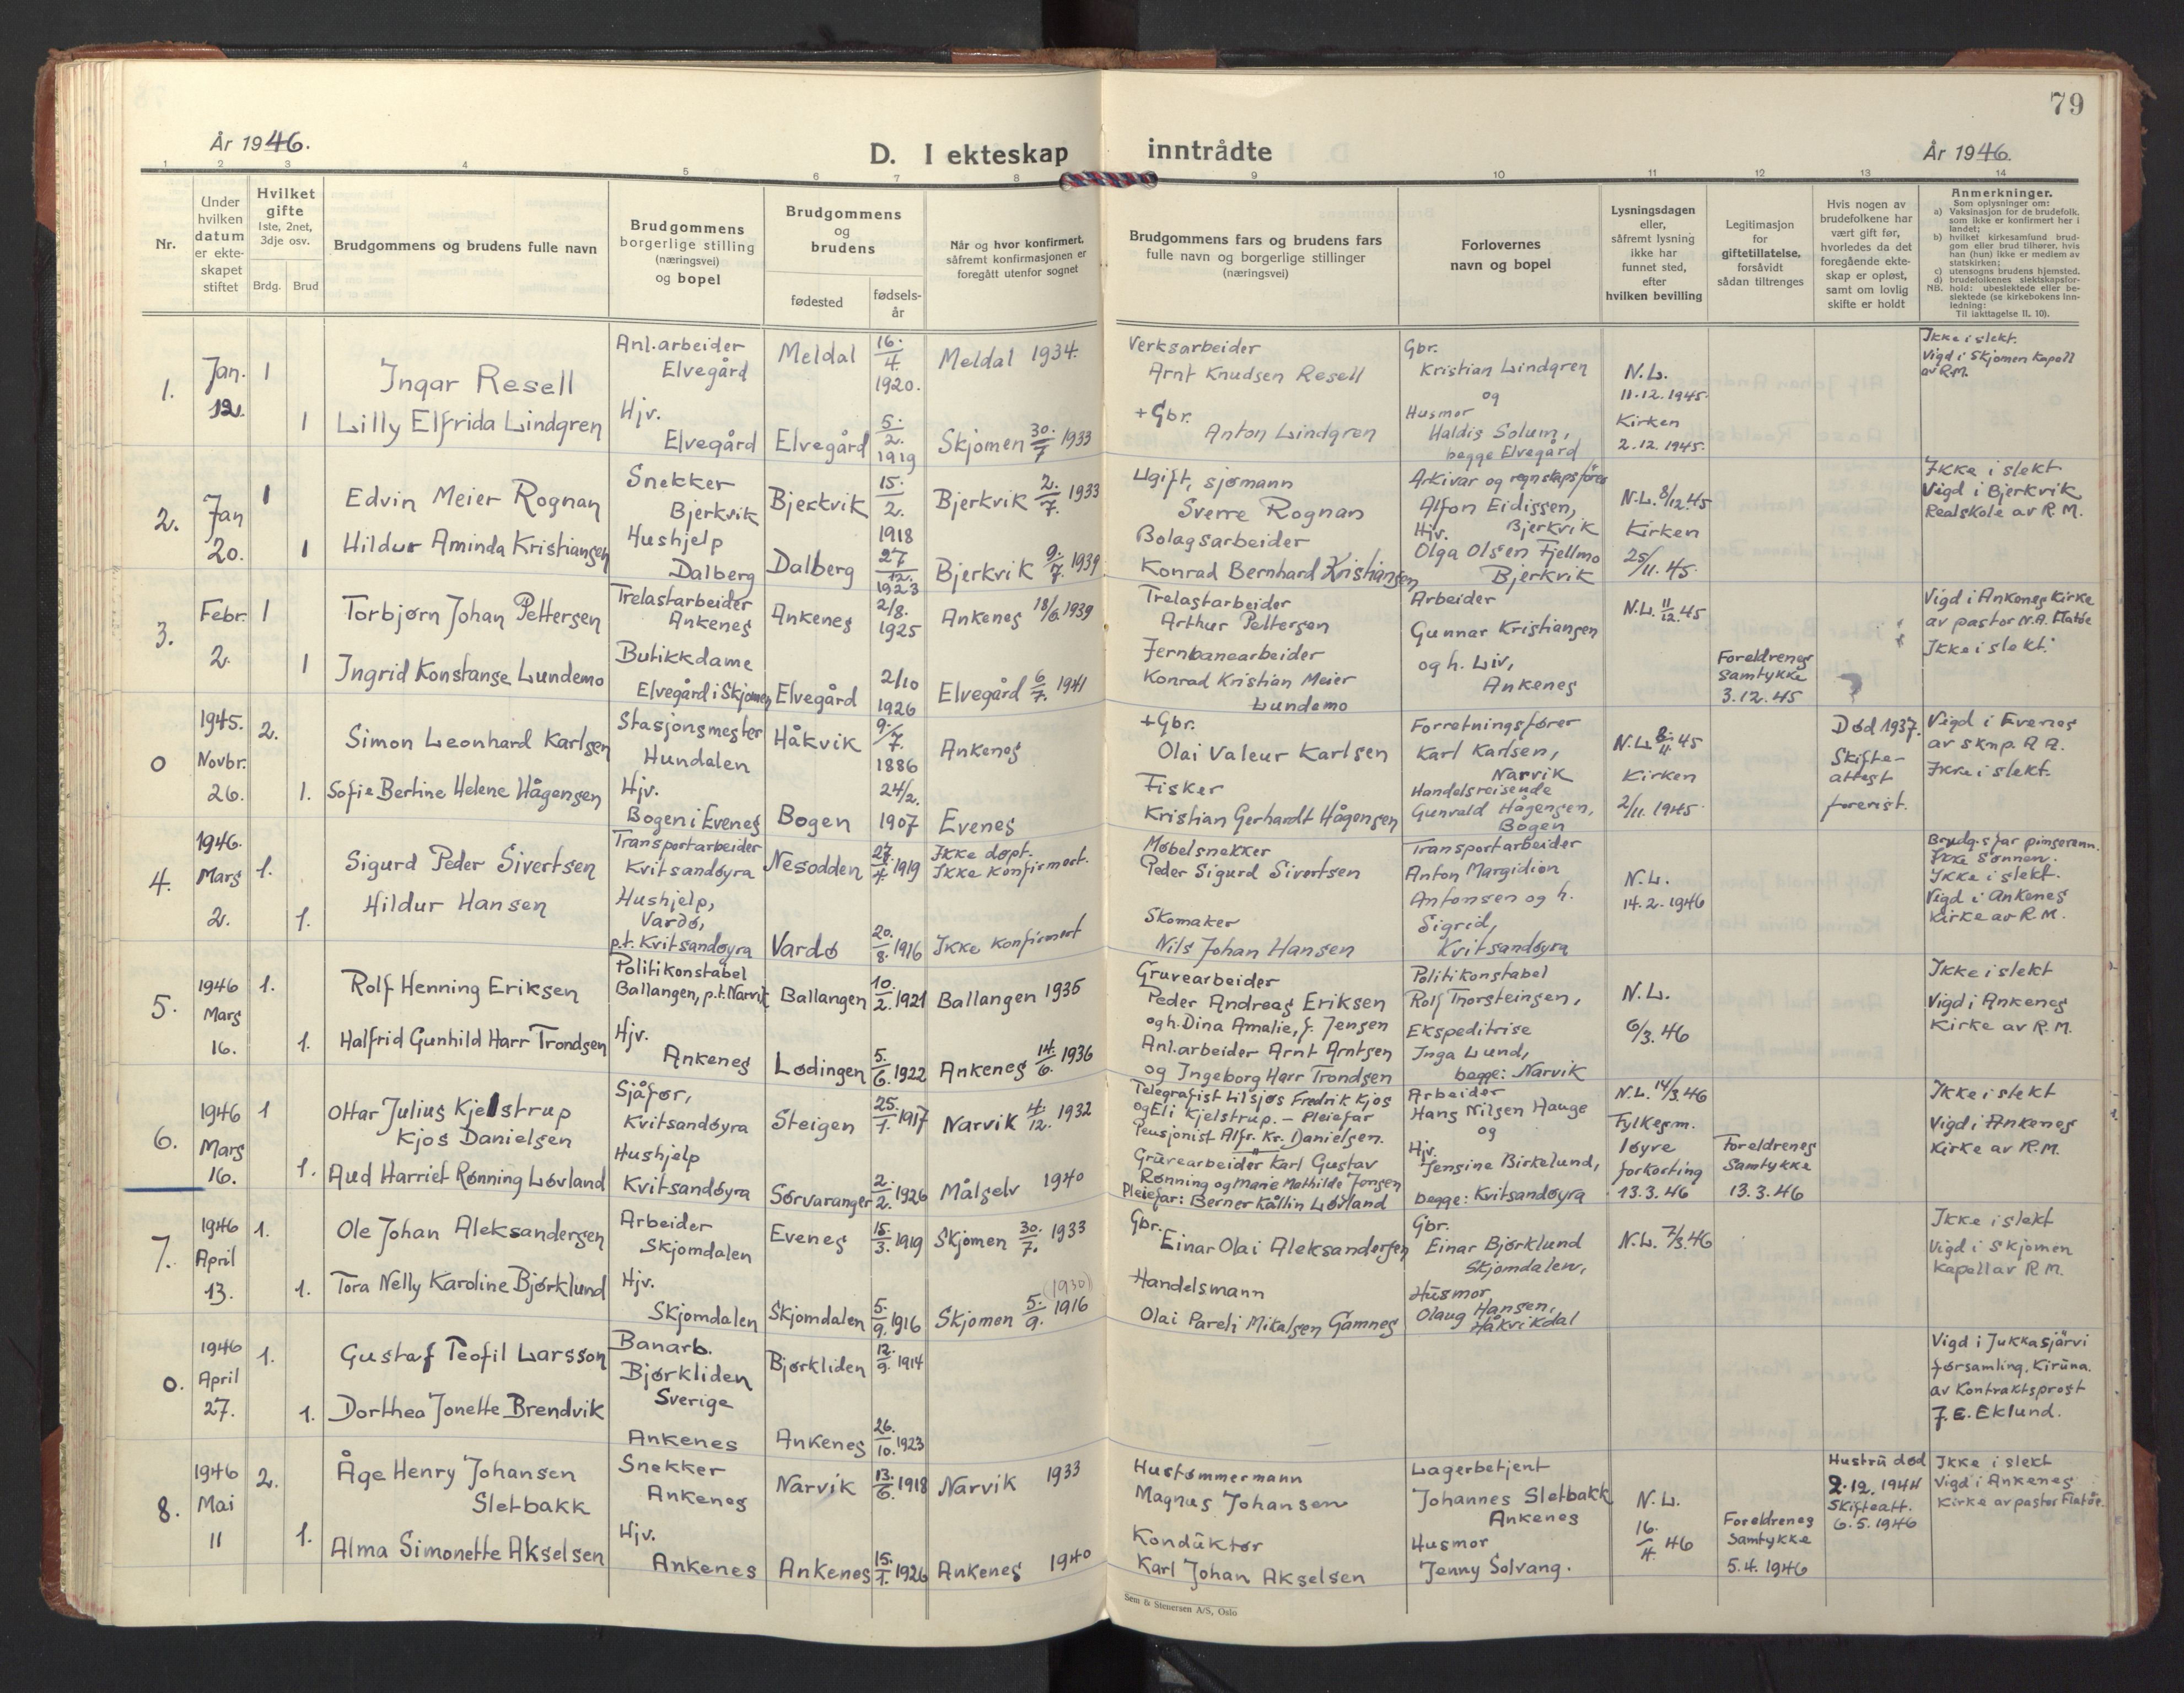 79
År 1946.
D. I ekteskap inntrådte
År 1946.
1 2 3 4 5 6 7 8 9 10 11 12 13 14
Nr.
Under hvilken datum er ekte-skapet stiftet
Hvilket gifte
1ste, 2net, 3dje osv.
Brdg. Brud
Brudgommens og brudens fulle navn
Brudgommens borgerlige stilling (næringsvei) og bopel
Brudgommens og brudens
fødested
fødsels-år
Når og hvor konfirmert, såfremt konfirmasjonen er foregått utenfor sognet
Brudgommens fars og brudens fars fulle navn og borgerlige stillinger (næringsvei)
Forlovernes navn og bopel
Lysningsdagen eller, såfremt lysning ikke har funnet sted, efter hvilken bevilling
Legitimasjon for giftetillatelse, forsåvidt sådan tiltrenges
Hvis nogen av brudefolkene har vært gift før, hvorledes da det foregående ekte-skap er opløst, samt om lovlig skifte er holdt
Anmerkninger.
Som oplysninger om:
a) Vaksinasjon for de brudefolk, som ikke er konfirmert her i landet;
b) hvilket kirkesamfund brud-gom eller brud tilhører, hvis han (hun) ikke er medlem av statskirken;
c) utensogns brudens hjemsted,
d) brudefolkenes slektskapsfor-hold: ubeslektede eller be-slektede (se kirkebokens Inn-ledning:
NB.
Til iakttagelse II, 10).
1. Jan. 12. 1
Ingar Resell
Anl.arbeider
Elvegård
Meldal 16./4. 1920.
Meldal 1934.
Verksarbeider
Arnt Knudsen Resell
Gbr.
Kristian Lindgren
og
N.L.
11.12.1945.
Ikke i slekt.
Vigd i Skjomen Kapell
av R.M.
1 Lilly Elfrida Lindgren
Hjv.
Elvegård
Elvegård 5./2. 1919
Skjomen 30./7 1933
+ Gbr.
Anton Lindgren
Husmor
Haldis Solum,
begge Elvegård
Kirken
2.12.1945.
2. Jan 20. 1
Edvin Meier Rognan
Snekker
Bjerkvik
Bjerkvik 15./2. 1918
Bjerkvik 2./7. 1933
Ugift, sjømann
Sverre Rognan
Arkivar og regnskapsfører
Alfon Eidissen,
Bjerkvik
N.L. 8/12.45
Ikke i slekt
Vigd i Bjerkvik
Realskole av R.M.
1 Hildur Aminda Kristiansen
Hushjelp
Dalberg
Dalberg 27/12. 1923
Bjerkvik 9./7. 1939
Bolagsarbeider
Konrad Bernhard Kristiansen
Hjv.
Olga Olsen Fjellmo
Bjerkvik
Kirken
25/11.45.
3. Febr. 2. 1
Torbjørn Johan Pettersen
Trelastarbeider
Ankenes
Ankenes 2/8. 1925
Ankenes 18/6 1939
Trelastarbeider
Arthur Pettersen
Arbeider
Gunnar Kristiansen
N.L. 11/12.45
Vigd i Ankenes Kirke
av pastor N.A. Flatøe
Ikke i slekt.
1 Ingrid Konstanse Lundemo
Butikkdame
Elvegård i Skjomen
Elvegård 2/10 1926
Elvegård 6/7. 1941
Jernbanearbeider
Konrad Kristian Meier
Lundemo
og h. Liv,
Ankenes
Foreldrenes
Samtykke
3.12.45
0 1945. Novbr. 26. 2.
Simon Leonhard Karlsen
Stasjonsmester
Hundalen
Håkvik 9./7. 1886
Ankenes
+ Gbr.
Olai Valeur Karlsen
Forretningsfører
Karl Karlsen,
Narvik
N.L. 8./11.45
Død 1937.
Skifte-
attest
forevist.
Vigd i Evenes
av sknp. A A.
Ikke i slekt.
1. Sofie Bertine Helene Hågensen
Hjv.
Bogen i Evenes
Bogen 24/2. 1907
Evenes
Fisker
Kristian Gerhardt Hågensen
Handelsreisende
Gunvald Hågensen,
Bogen
Kirken
2/11.1945.
4. 1946. Mars 2. 1.
Sigurd Peder Sivertsen
Transportarbeider
Kvitsandøyra
Nesodden 27./4. 1919
Ikke døpt.
Ikke konfirmert.
Møbelsnekker
Peder Sigurd Sivertsen
Transportarbeider
Anton Margidion
Antonsen og h.
N.L.
14.2.1946
Ikke i slekt.
Vigd i Ankenes
Kirke av R.M.
1. Hildur Hansen
Hushjelp,
Vardø,
p.t. Kvitsandøyra
Vardø 20./8. 1916
Ikke konfirmert
Skomaker
Nils Johan Hansen
Sigrid,
Kvitsandøyra
5. 1946 Mars 16. 1.
Rolf Henning Eriksen
Politikonstabel
Ballangen, p.t. Narvik
Ballangen 10./2. 1921
Ballangen 1935
Gruvearbeider
Peder Andreas Eriksen
og h. Dina Amalie, f. Jensen
Politikonstabel
Rolf Thorsteinsen,
N.L.
6/3.46
Ikke i slekt
Vigd i Ankenes
Kirke av R.M.
1. Halfrid Gunhild Harr Trondsen
Hjv.
Ankenes
Lødingen 5./6. 1922
Ankenes 14./6. 1936
Anl.arbeider Arnt Arntsen
og Ingeborg Harr Trondsen
Ekspeditrise
Inga Lund,
begge: Narvik
6. 1946 Mars 16. 1
Ottar Julius Kjelstrup
Kjos Danielsen
Sjåfør,
Kvitsandøyra
Steigen 25./1. 1917
Narvik 4./12. 1932
Telegrafist tilsjøs Fredrik Kjos
og Eli Kjelstrup. – Pleiefar
Pensjonist Alfr. Kr. Danielsen.
Arbeider
Hans Nilsen Hauge
og
N.L. 14/3.46
Fylkesm.
løyre
forkorting
13.3.46
Ikke i slekt
Vigd i Ankenes
Kirke av R.M.
1. Aud Harriet Rønning Løvland
Hushjelp
Kvitsandøyra
Sørvaranger 2./2. 1926
Målselv 1940
Gruvearbeider Karl Gustav
Rønning og Marie Mathilde Jensen
Pleiefar: Berner Kållin Løvland
Hjv.
Jensine Birkelund,
begge: Kvitsandøyra
Foreldrenes
Samtykke
13.3.46
7. 1946 April 13. 1.
Ole Johan Aleksandersen
Arbeider
Skjomdalen
Evenes 15./3. 1919
Skjomen 30./7. 1933
Gbr.
Einar Olai Aleksandersen
Gbr.
Einar Bjørklund
Skjomdalen,
N.L. 7/3.46
Ikke i slekt
Vigd i Skjomen
Kapell av R.M.
1. Tora Nelly Karoline Bjørklund
Hjv.
Skjomdalen
Skjomdalen 5./9. 1916
Skjomen 5./9. 1916 (1930)
Handelsmann
Olai Pareli Mikalsen Gamnes
Husmor
Olaug Hansen,
Håkvikdal
0. 1946 April 27. 1.
Gustaf Teofil Larsson
Banarb.
Bjørkliden
Sverige
Bjørkliden 12./9. 1914
Vigd i Jukkasjärvi
församling, Kiruna.
av Kontraktsprost
J.E. Eklund.
1. Dorthea Jonette Brendvik
Ankenes
Ankenes 26./10. 1923
8. 1946 Mai 11 2.
Åge Henry Johansen
Sletbakk
Snekker
Ankenes
Narvik 13./6. 1918
Narvik 1933
Hustømmermann
Magnus Johansen
Lagerbetjent
Johannes Sletbakk
Ankenes
N.L.
16./4. 46
Hustru død
2.12.1944
Skifteatt.
6.5.1946
Ikke i slekt
Vigd i Ankenes
Kirke av pastor Flatøe.
1. Alma Simonette Akselsen
Hjv.
Ankenes
Ankenes 15./1. 1926
Ankenes 1940
Konduktør
Karl Johan Akselsen
Husmor
Jenny Solvang.
Foreldrenes
Samtykke
5.4.1946
Sem & Stenersen A/S, Oslo